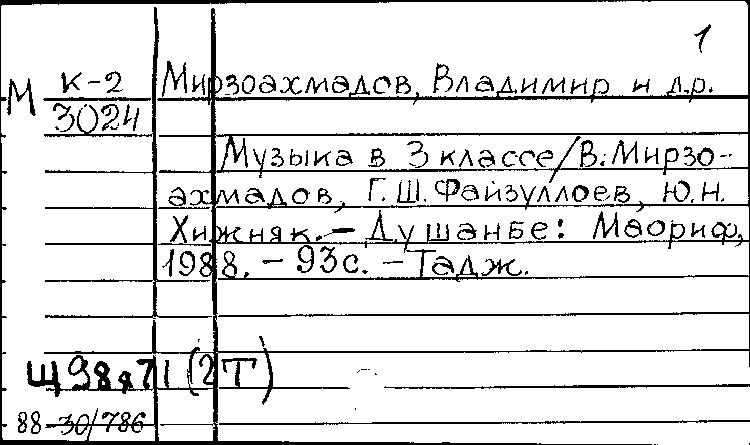 1
М К-2 Мирзоахмадов, Владимир и др.
3024
Музыка в 3 классе/В.Мирзо-
ахмадов, Г.Ш.Файзуллоев, Ю.Н.
Хижняк.- Душанбе: Маориф,
1988. - 93с. - Тадж.
Щ98я71(2Т)
88-30/786